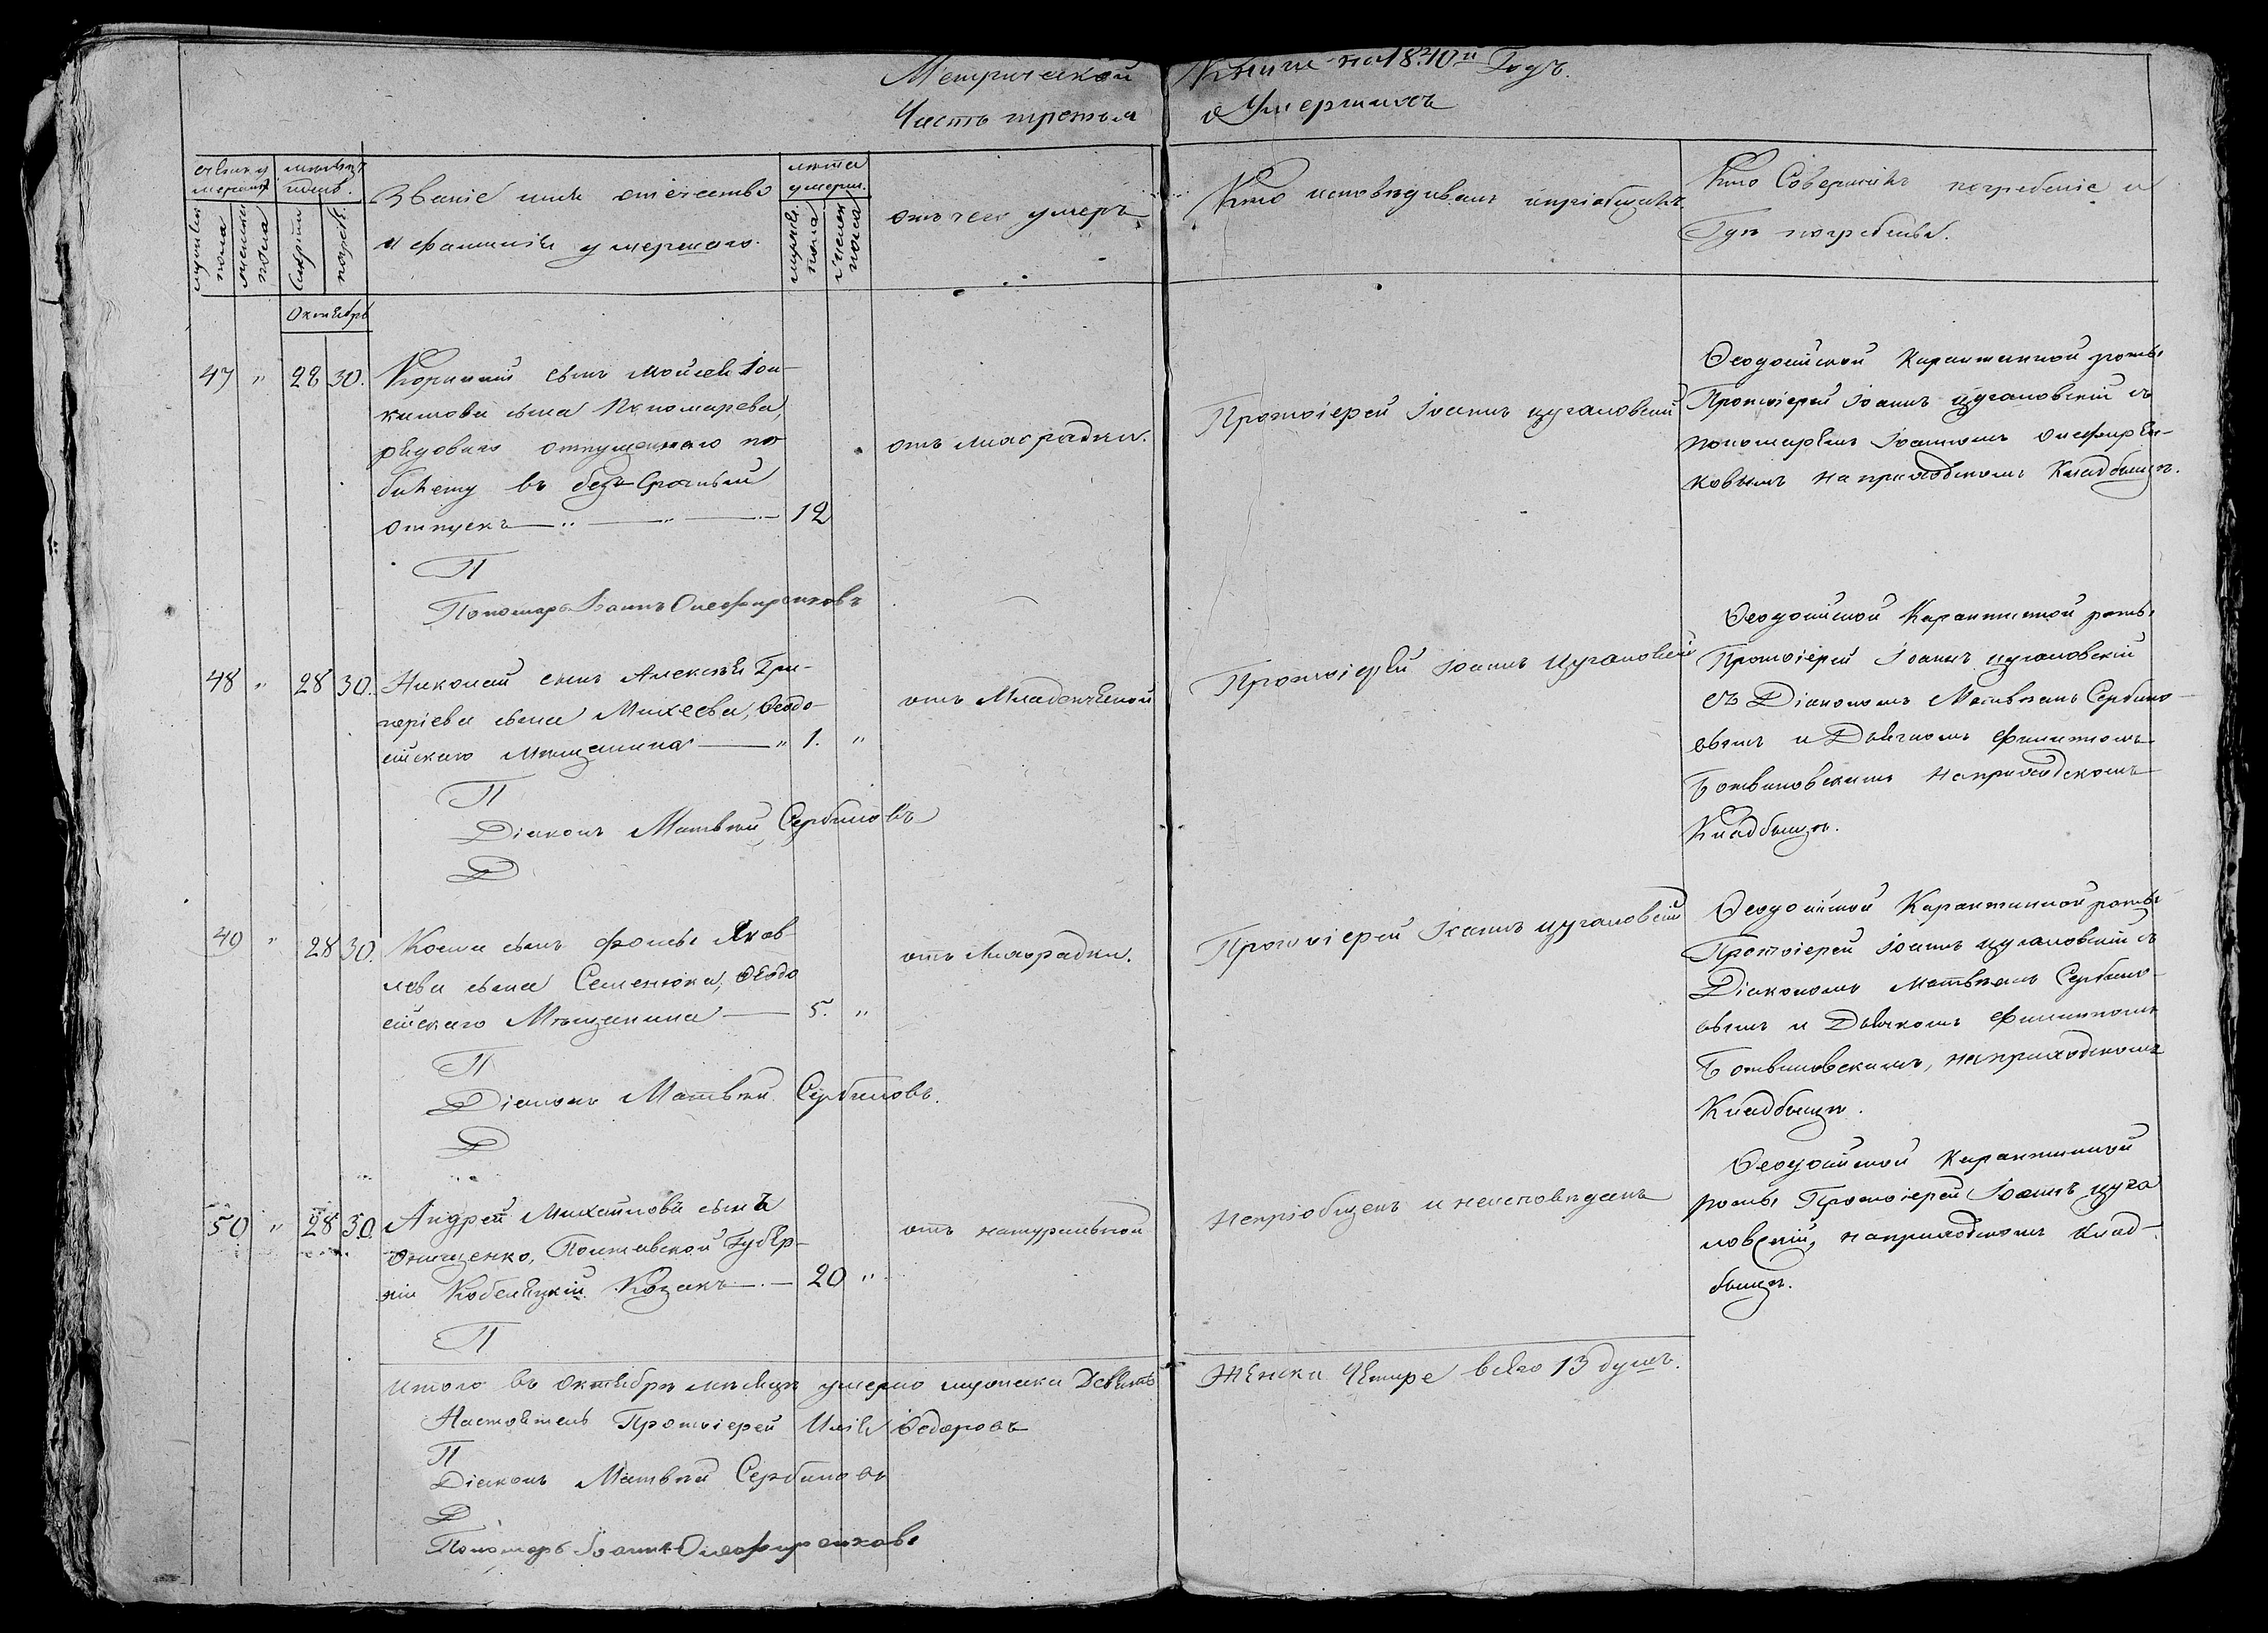 Метрической Книги на 1840й Годъ.
Часть третья о Умершихъ
мѣсяцъ
лѣта
умерш.
Званіе имя отечество
и фамилія умершаго.
отъ чего умеръ
Кто исповѣдывалъ и пріобщилъ.
Кто Совершилъ погребеніе и
Гдѣ погребены.
мужеска пола
женска пола
Смерти
погреб.
мужск. пола
женск. пола
Октябрь
47 " 28 30. Корнилій сынъ Мойсея Іоа-
кимова сына Пономарева,
рядоваго отпущеннаго по
билету въ безъ Срочный
отпускъ 12
отъ лихорадки.
Протоіерей Іоаннъ Цугановскій
Ѳеодосійской Карантинной роты
Протоіерей Іоаннъ Цугановскій съ
пономаремъ Іоанномъ Олефирен-
ковымъ на приходскомъ Кладбищѣ.
П
Пономарь Іоаннъ Олефиренковъ
48 " 28 30. Николай сынъ Алексѣя Гри-
горіева сына Михеева, Ѳеодо-
сійскаго Мѣщанина " 1. "
отъ Младенческой
Протоіерей Іоаннъ Цугановскій
Ѳеодосійской Карантинной роты
Протоіерей Іоаннъ Цугановскій
съ Діакономъ Матвѣемъ Сербино-
вымъ и Дьячкомъ Филиппомъ
Ботвиновскимъ на приходскомъ
Кладбищѣ.
П
Діаконъ Матвѣй Сербиновъ
Д
49 " 28 30. Косма сынъ Фомы Яков-
лева сына Семенюка, Ѳеодо
сійскаго Мѣщанина 5. "
отъ лихорадки.
Протоіерей Іоаннъ Цугановскій
Ѳеодосійской Карантинной роты
Протоіерей Іоаннъ Цугановскій съ
Діакономъ Матвѣемъ Сербино-
вымъ и Дьячкомъ Филиппомъ
Ботвиновскимъ, на приходскомъ
Кладбищѣ.
П
Діаконъ Матвѣй Сербиновъ.
Д
50 " 28 30. Андрей Михайловъ сынъ
Онищенко, Полтавской Губер-
ніи Кобеляцкій Козакъ 20 "
отъ натуральной
Непріобщенъ и неисповѣданъ
Ѳеодосійской Карантинной
роты Протоіерей Іоаннъ Цуга
новскій, на приходскомъ Клад-
бищѣ.
П
Итого въ Октябрѣ мѣсяцѣ умерло мужеска Девять Женска Четыре всего 13 душъ.
Настоятель Протоіерей Илія Ѳедоровъ
П
Діаконъ Матвѣй Сербиновъ
Д
Пономарь Іоаннъ Олефиренковъ